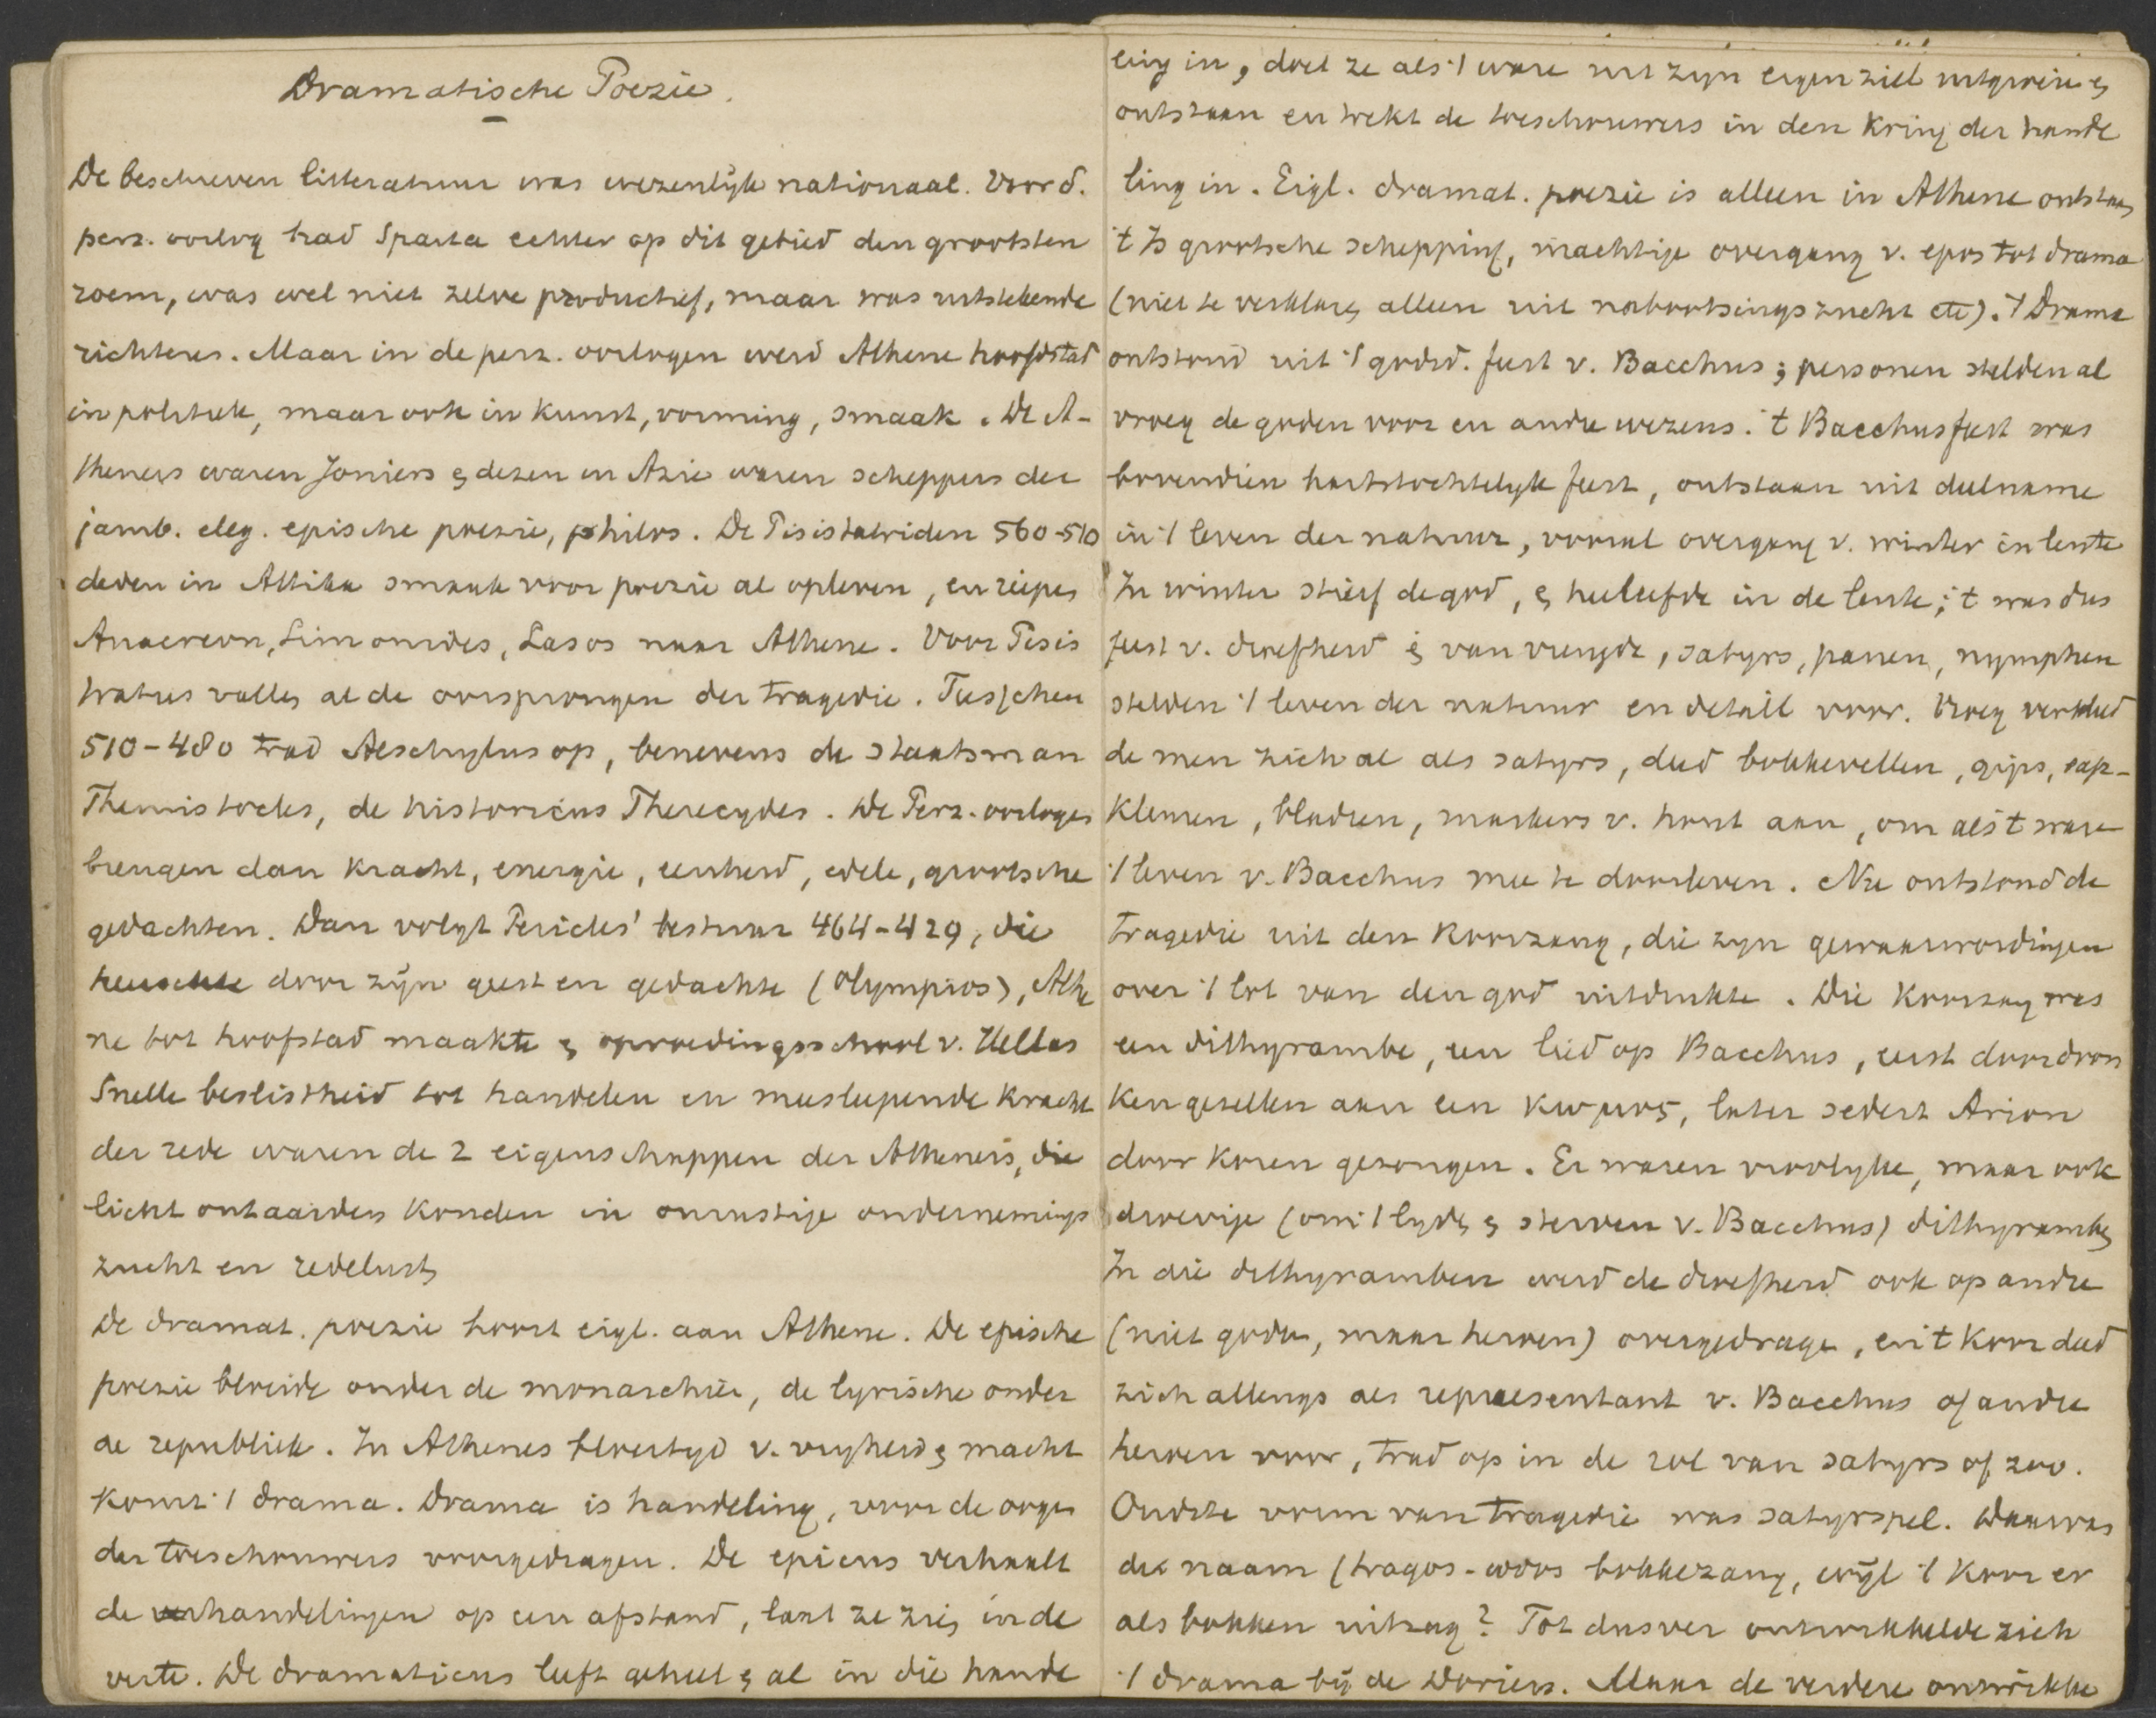 Dramatische Poezie.
De beschreven litteratuur was wezenlijk nationaal. Voor d.
perz. oorlog had Sparta echter op dit gebied den grootsten
roem, was wel niet zelve productief, maar was uitstekende
richteres. Maar in de perz. oorlogen werd Athene hoofdstad
in politiek, maar ook in kunst, vorming, smaak. De A-
theners waren Joniers & dezen in Azie waren scheppers der
jamb. eleg. epische poezie, philos. De Pisistatriden 560-510
deden in Attika smaak voor poezie al opleven, en riepen
Anacreon, Simonides, Lasos naar Athene. Voor Pisis
tratus vallen al de oorsprongen der tragedie. Tusschen
510-480 trad Aeschylus op, benevens de staatsman
Themistocles, de historicus Pherecydes. De Perz. oorlogen
brengen dan kracht, energie, eenheid, edele, grootsche
gedachten. Dan volgt Pericles' bestuur 464-429, die
heerschte door zijn geest en gedachte (Olympios), Athe
ne tot hoofstad maakte & opvoedingsschool v. Hellas
Snelle beslistheid tot handelen en meesleepende kracht
der rede waren de 2 eigenschappen der Atheners, die
licht ontaarden konden in onrustige ondernemings
zucht en redelust
De dramat. poezie hoort eigl. aan Athene. De epische
poezie bloeide onder de monarchie, de lyrische onder
de republiek. In Athenes bloeityd v. vryheid & macht
komt 't drama. Drama is handeling, voor de oogen
der toeschouwers voorgedragen. De epicus verhaalt
de handelingen op een afstand, laat ze zien in de
verte. De dramaticus leeft geheel & al in die hande
ling in, doet ze als 't ware uit zyn eigen ziel uitgroeien &
ontstaan en trekt de toeschouwers in den kring der hande
ling in. Eigl. dramat. poezie is alleen in Athene ontstaan
't Is grootsche schepping, machtige overgang v. epos tot drama
(niet te verklaren alleen uit nabootsingszucht etc). 't Drama
ontstond uit 't godsd. feest v. Bacchus; personen stelden al
vroeg de goden voor en andre wezens. 't Bacchusfeest was
bovendien hartstochtelyk feest, ontstaan uit deelname
in 't leven der natuur, vooral overgang v. winter in lente
In winter stierf de god, & herleefde in de lente; 't was dus
feest v. droefheid & van vreugde, satyrs, panen, nymphen
stelden 't leven der natuur en detail voor. Vroeg verkleed
de men zich al als satyrs, deed bokkevellen, gips, eap-
klemen, bladren, maskers v. hout aan, om als 't ware
't leven v. Bacchus mee te doorleven. Nu ontstond de
tragedie uit den koorzang, die zyn gewaarwordingen
over 't lot van den god uitdrukte. Die koorzang was
een dithyrambe, een lied op Bacchus, eerst door dron
ken gezellen aan een κωμος, later sedert Arion
door koren gezongen. Er waren vroolyke, maar ook
droevige (om 't lyden & sterven v. Bacchus) dithyramben
In die dithyramben werd de droefheid ook op andre
(niet goden, maar heroen) overgedragen, en 't koor deed
zich allengs als repraesentant v. Bacchus of andre
heroen voor, trad op in de rol van satyrs of zoo.
Oudste vorm van tragedie was satyrspel. Daarvan
de naam (tragos-odos bokkezang, wijl 't koor er
als bokken uitzag? Tot dusver ontwikkelde zich
't drama bij de Doriers. Maar de verdere ontwikke